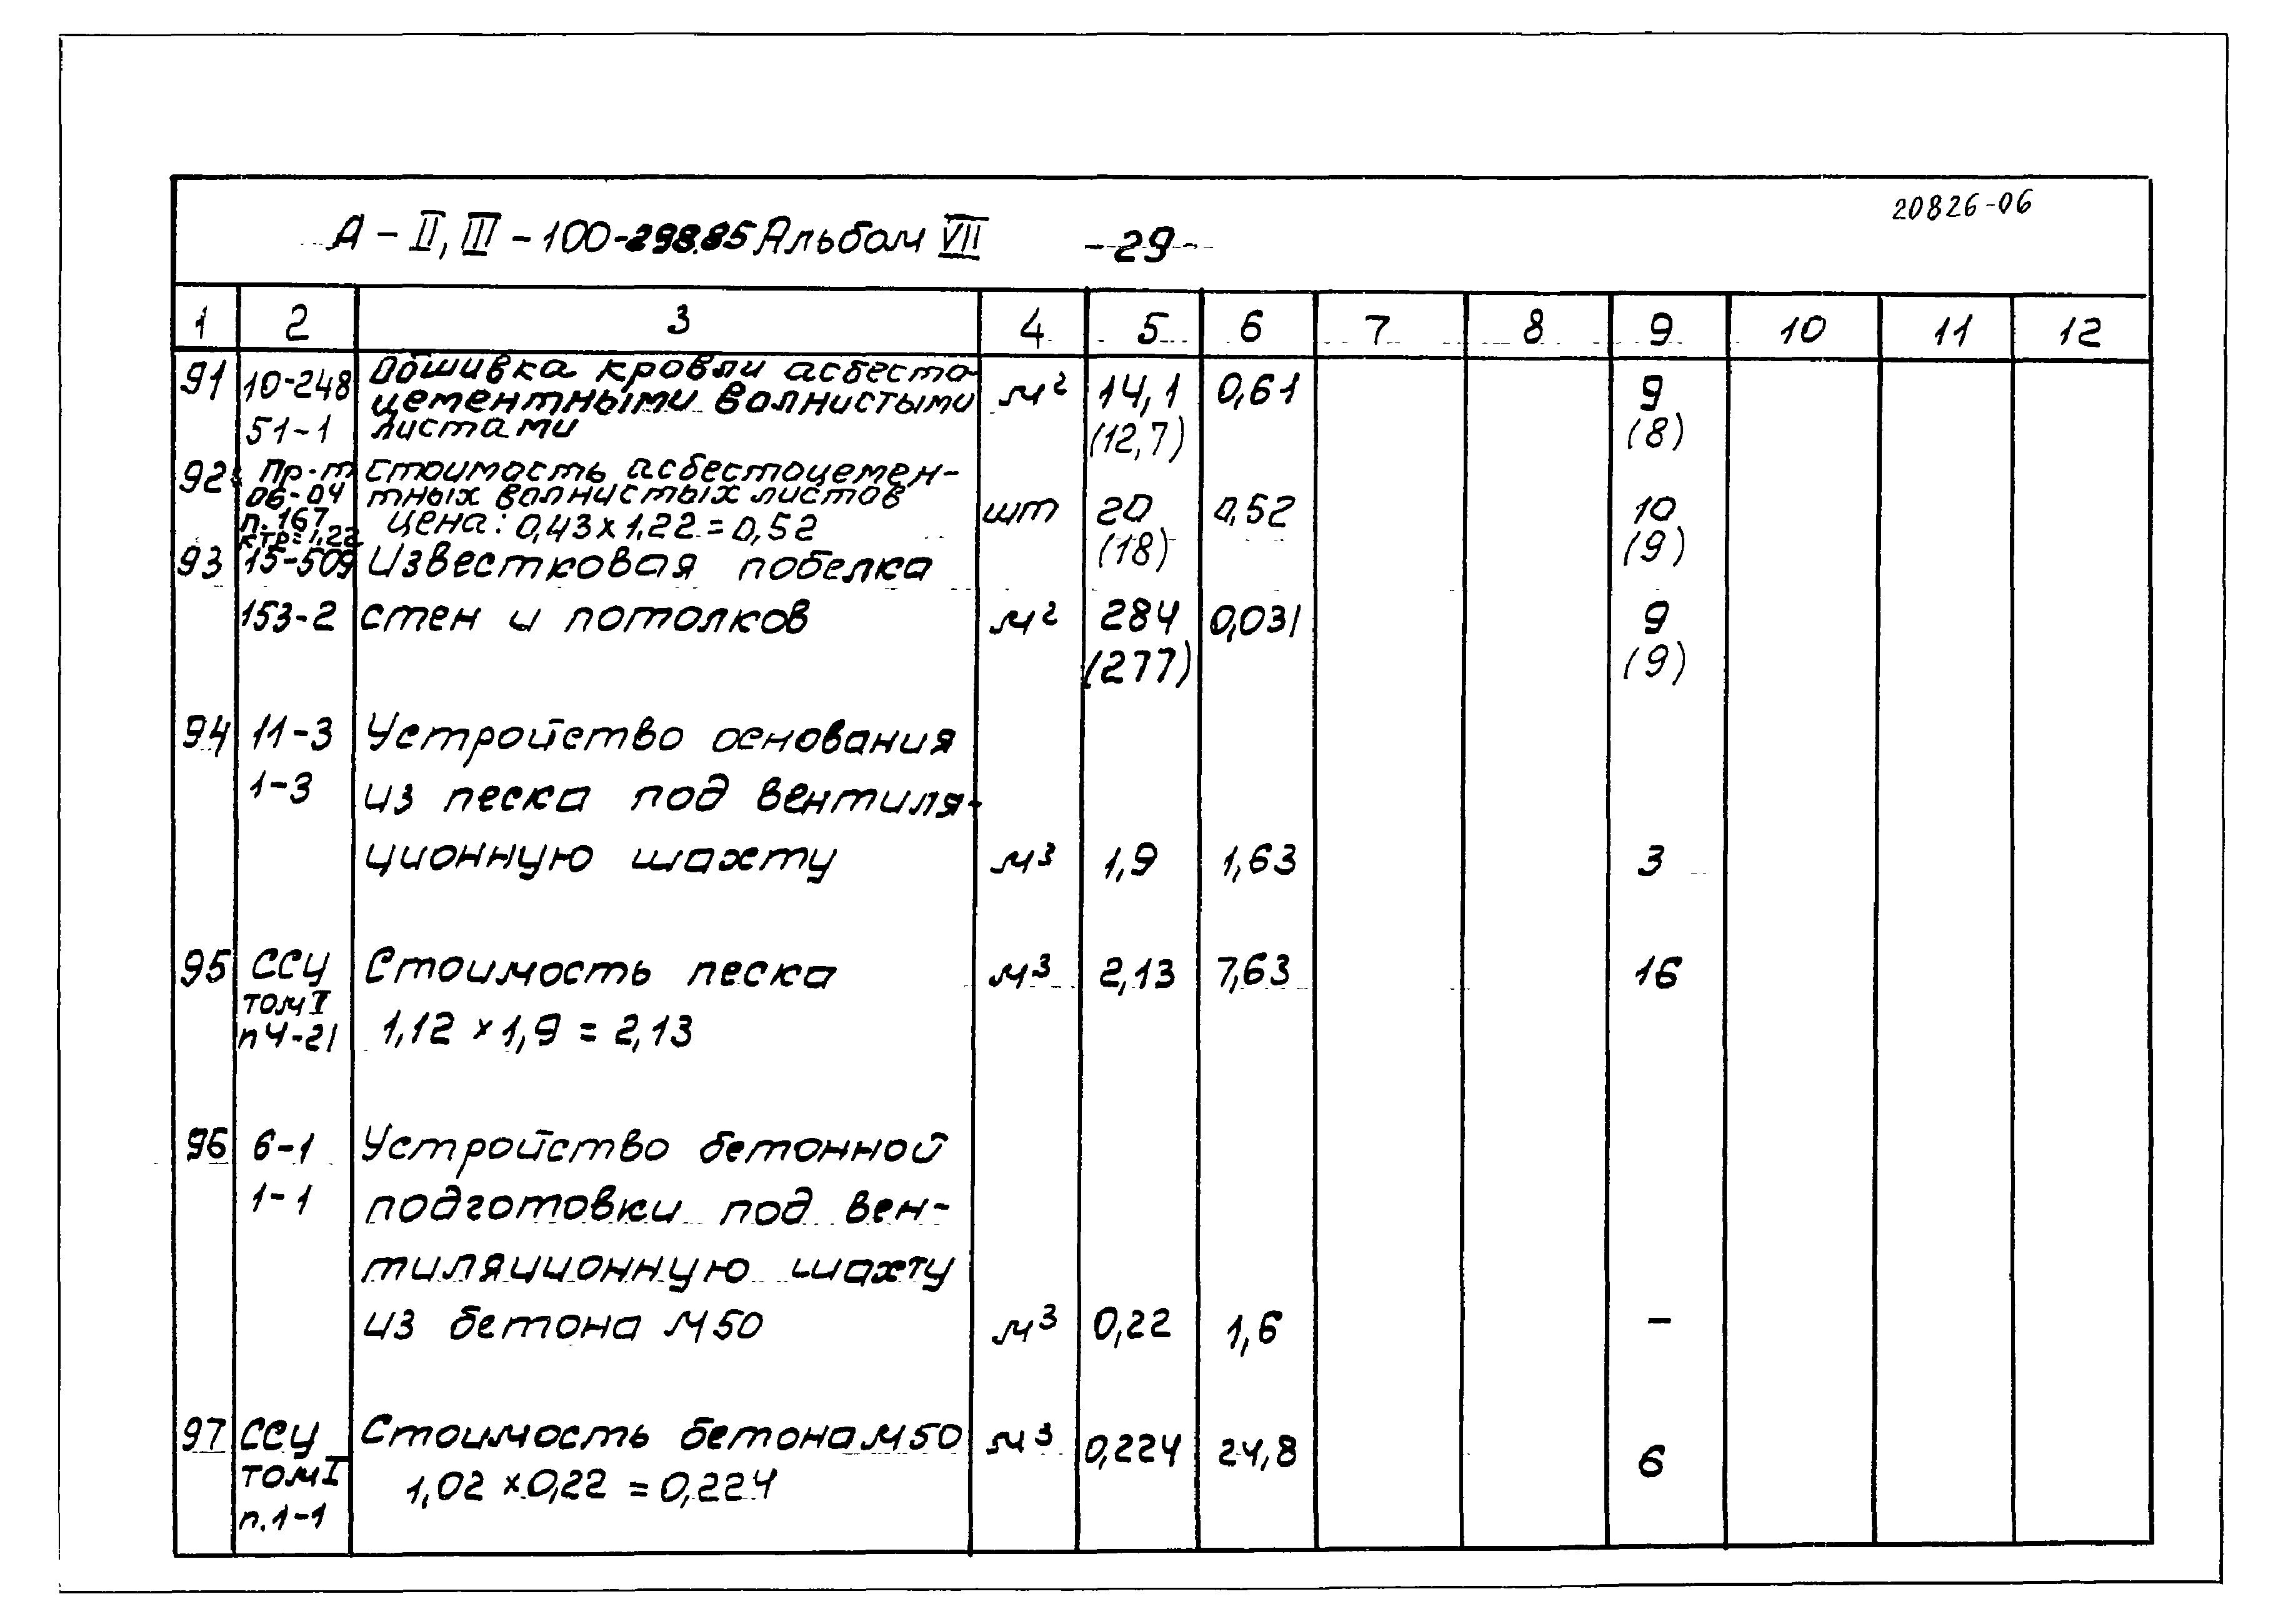 20826-06
А - II, III - 100-298.85 Альбом VII -29-
1 2 3 4 5 6 7 8 9 10 11 12
91 10-248 Обшивка кровли асбесто-
цементными волнистыми м² 14,1 0,61 9
51-1 листами (12,7) (8)
92 Пр-т Стоимость асбестоцемен-
06-04 тных волнистых листов шт 20 0,52 10
п. 167 цена: 0,43 x 1,22 = 0,52
ктр=1,22 (18) (9)
93 15-509 Известковая побелка
153-2 стен и потолков м² 284 0,031 9
(277) (9)
94 11-3 Устройство основания
1-3 из песка под вентиля-
ционную шахту м³ 1,9 1,63 3
95 ССЦ Стоимость песка м³ 2,13 7,63 16
том I
п 4-21 1,12 x 1,9 = 2,13
96 6-1 Устройство бетонной
1-1 подготовки под вен-
тиляционную шахту
из бетона М50 м³ 0,22 1,6 -
97 ССЦ Стоимость бетона М50 м³ 0,224 24,8 6
том I 1,02 x 0,22 = 0,224
п. 1-1